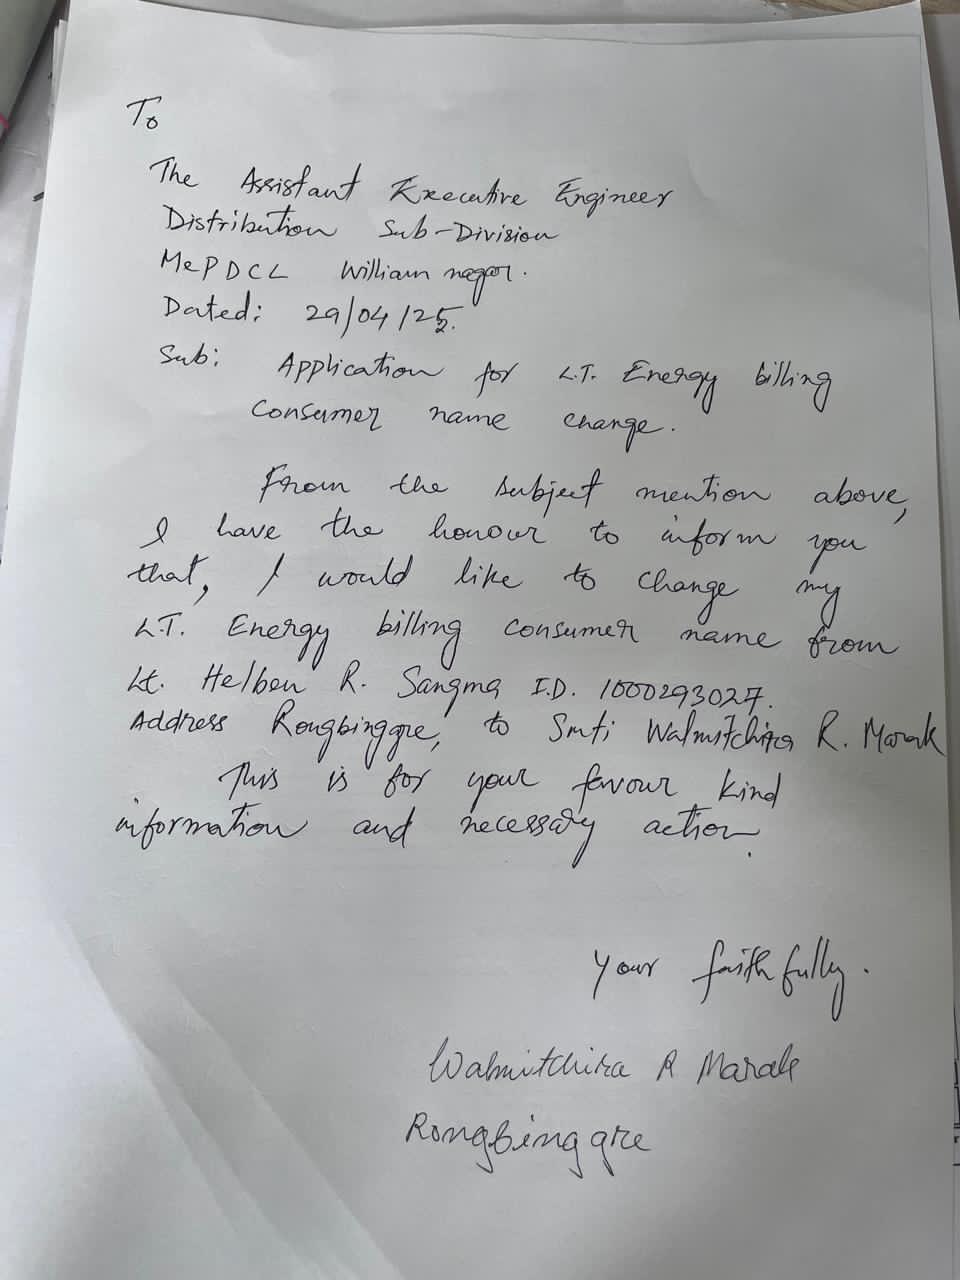 To
The Assistant Executive Engineer
Distribution Sub-Division
MePDCL William nagar.
Dated: 29/04/25.
Sub: Application for L.T. Energy billing
consumer name change.
From the subject mention above,
I have the honour to inform you
that, I would like to change my
L.T. Energy billing consumer name from
Lt. Helben R. Sangma I.D. 1000293027.
Address Rongbinggre, to Smti Walmitchira R. Marak
This is for your favour kind
information and necessary action.
Your faithfully.
Walmitchira R Marak
Rongbinggre